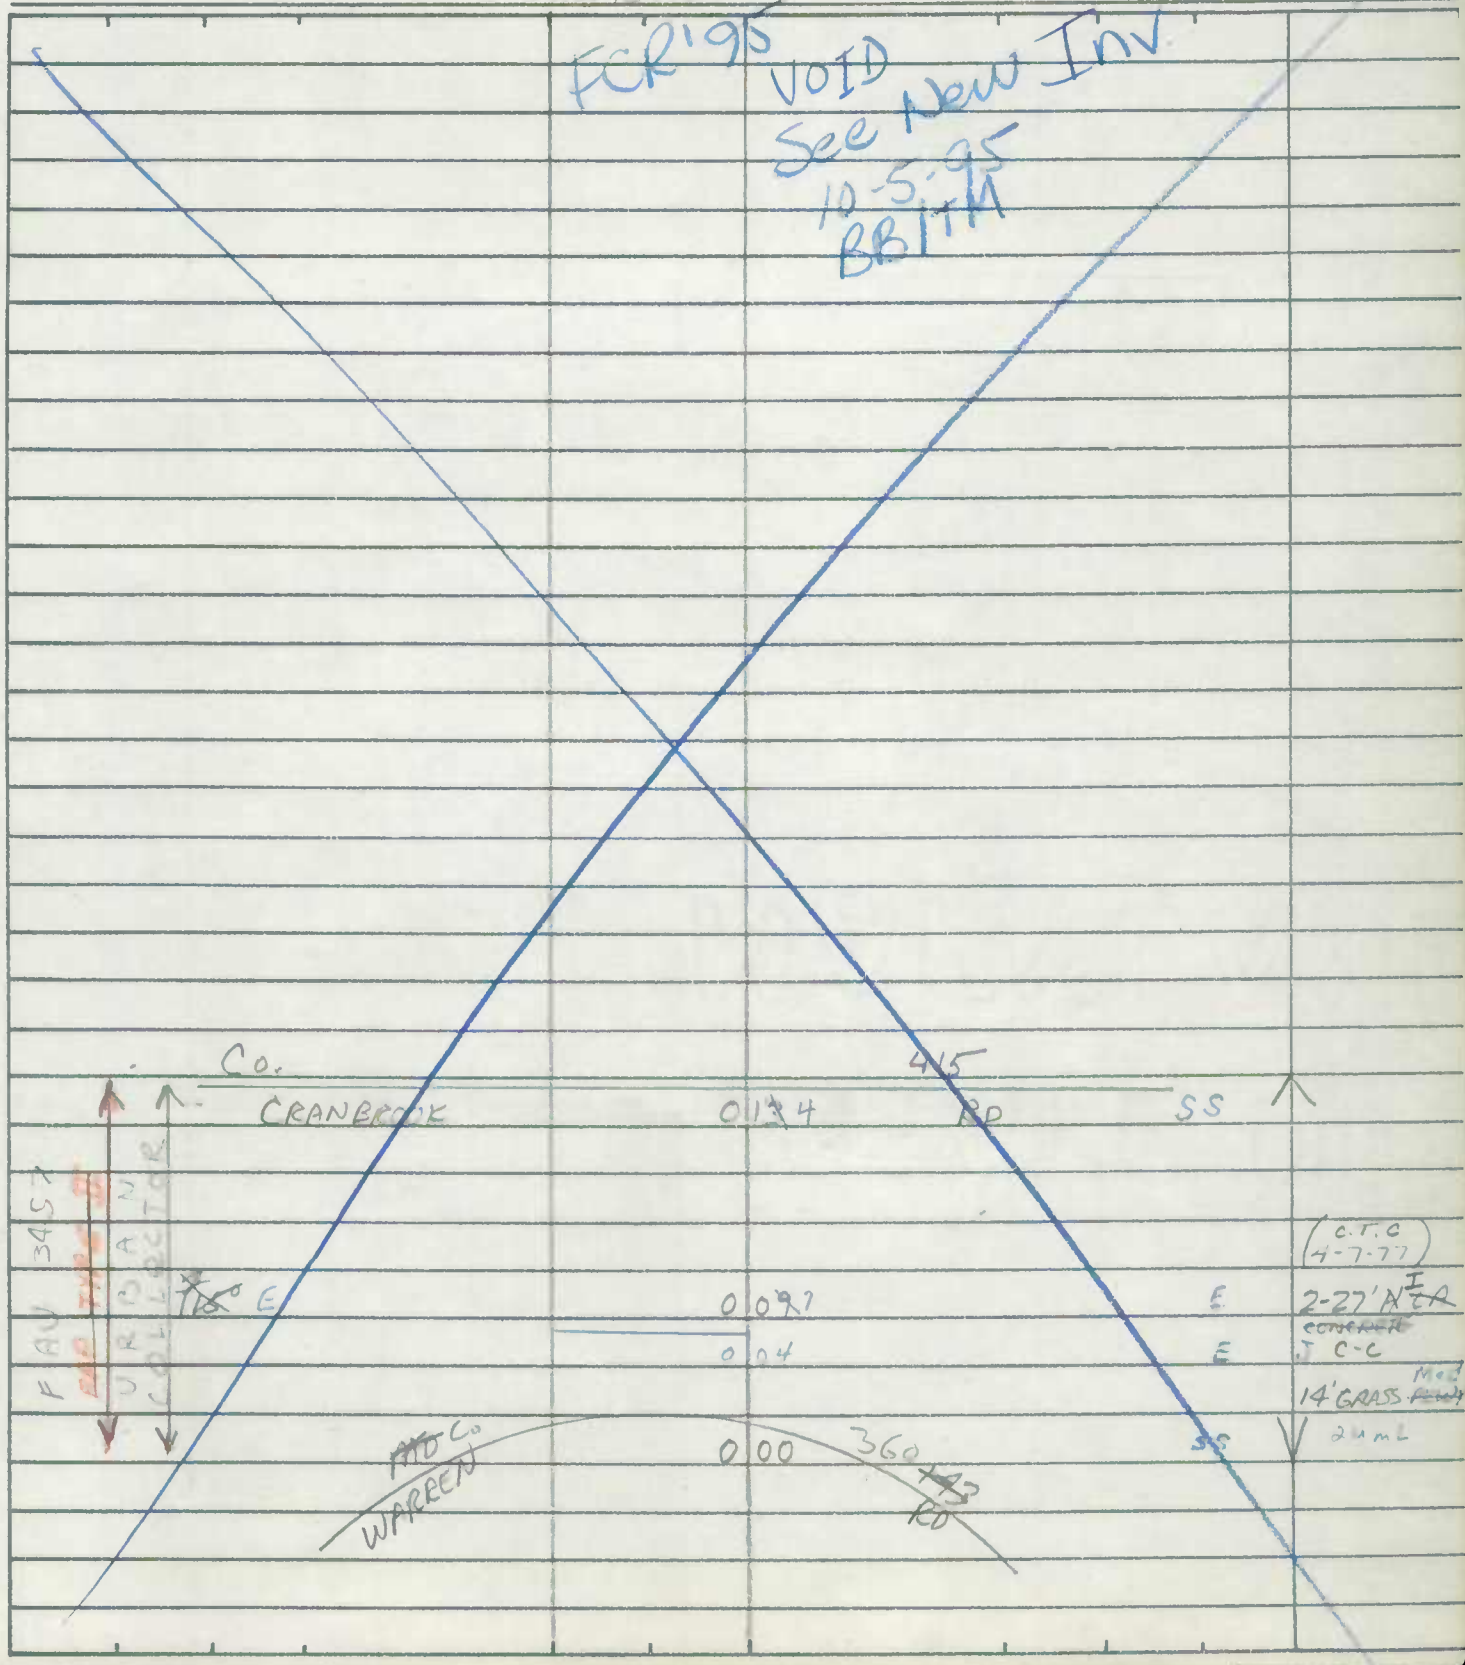 FCR '95
VOID
See New Inv
10-5-95
BB/TM
Co. 415
CRANBROOK 0.134 RD SS
FAU 3457
URBAN
COLLECTOR
(C.T.C
4-7-77)
E 0.097 E 2-27' I
CONCRETE
0.04 E C-C
14' GRASS Med
Co. 0.00 360 SS
WARREN RD